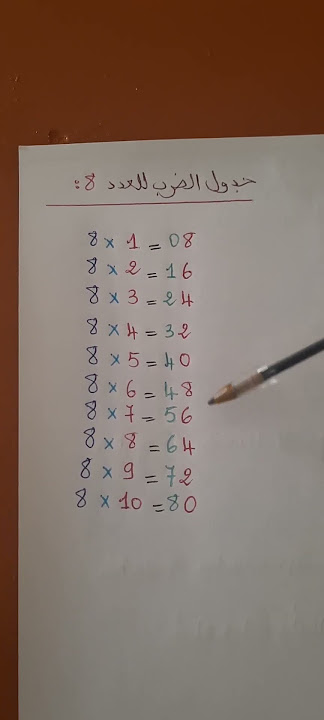 جدول الضرب للعدد 8:
8 × 1 = 08
8 × 2 = 16
8 × 3 = 24
8 × 4 = 32
8 × 5 = 40
8 × 6 = 48
8 × 7 = 56
8 × 8 = 64
8 × 9 = 72
8 × 10 = 80